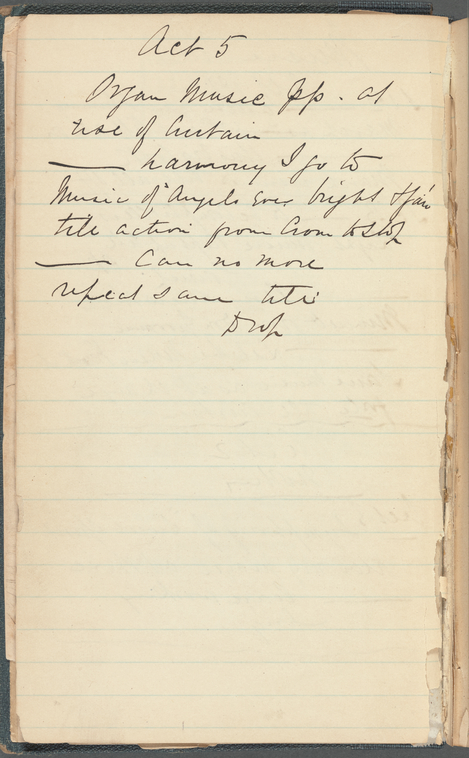 Act 5
Organ Music pp. at
rise of Curtain
—— harmony I go to
Music of "Angels Ever bright & fair
till action from Crom to stop
—— Can no more
repeat same till
Drop